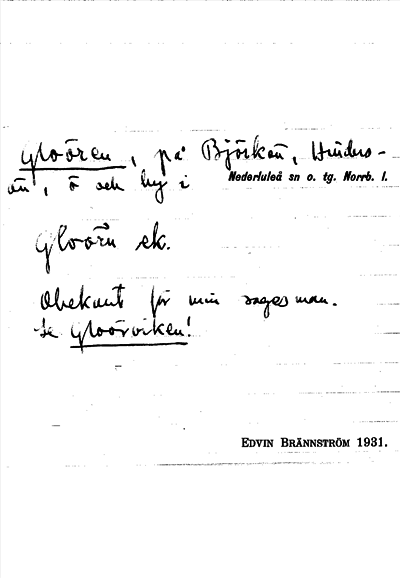 Gloören, på Björkön, Hindersön, ö och by i
Nederluleå sn o. tg. Norrb. l.
Gloörn ek.
Obekant för min sagesman.
Se Gloörviken!
EDVIN BRÄNNSTRÖM 1931.